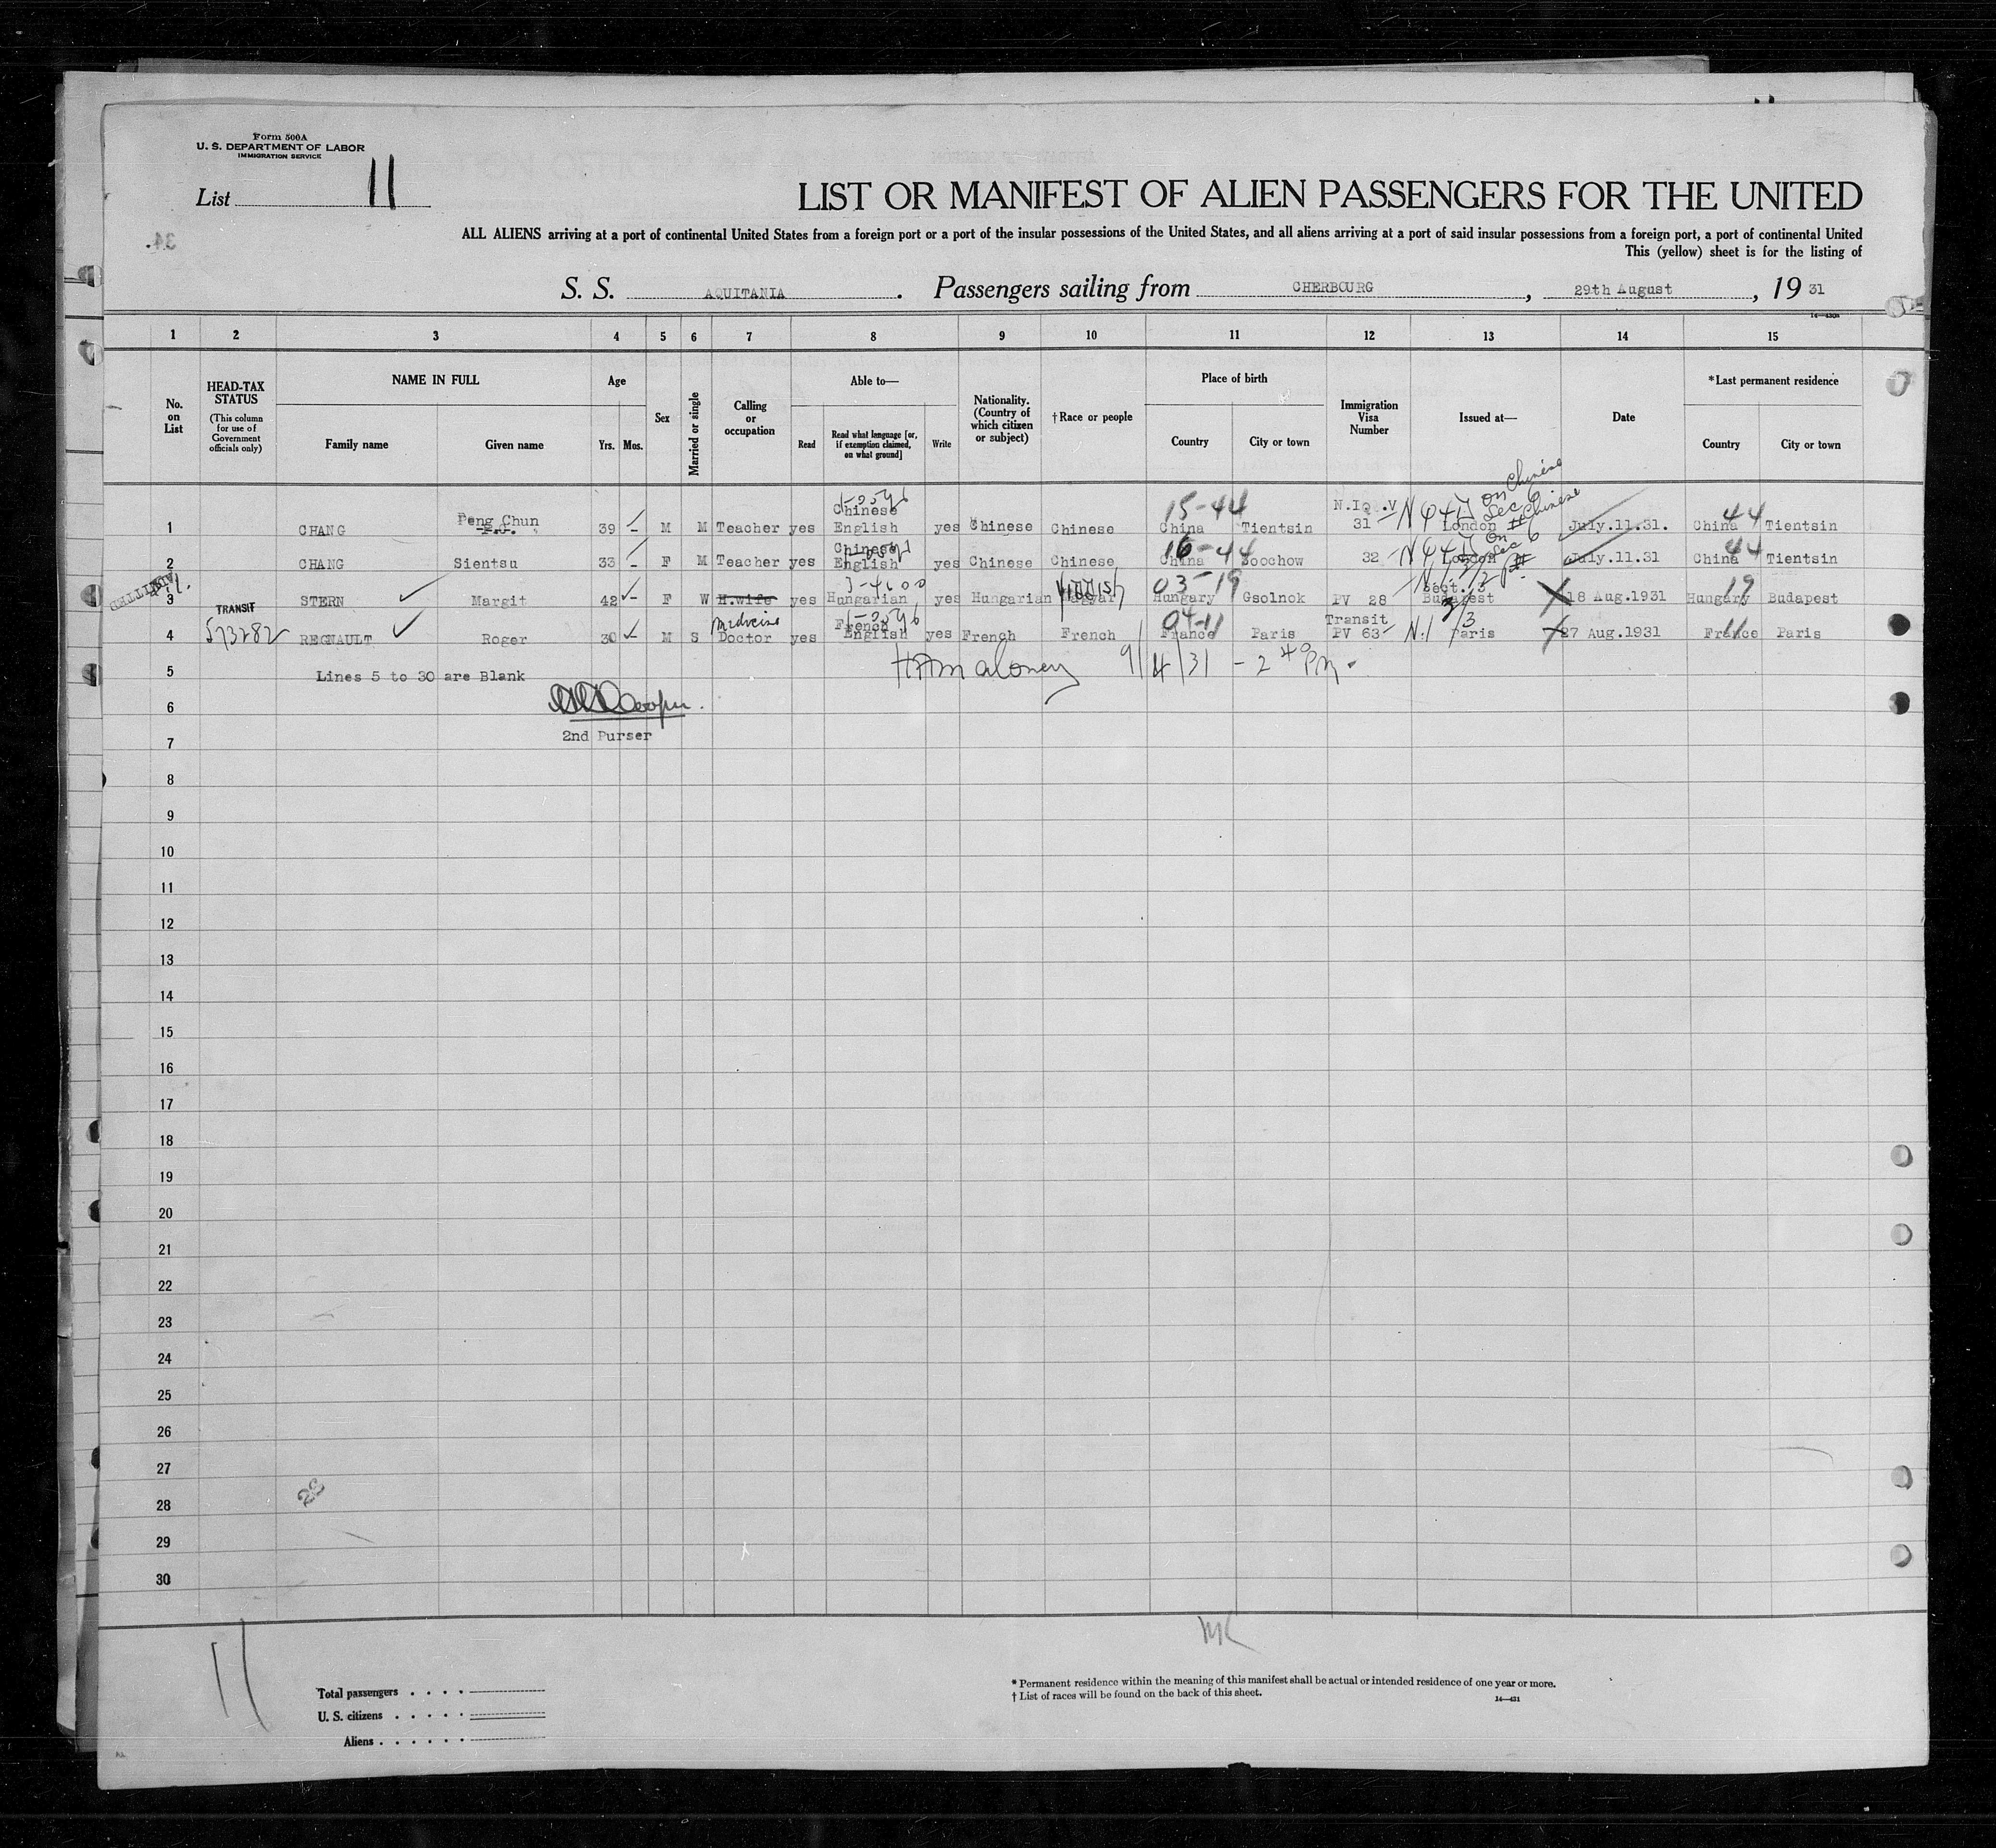 Form 500A
U. S. DEPARTMENT OF LABOR
IMMIGRATION SERVICE
List 11
LIST OR MANIFEST OF ALIEN PASSENGERS FOR THE UNITED
ALL ALIENS arriving at a port of continental United States from a foreign port or a port of the insular possessions of the United States, and all aliens arriving at a port of said insular possessions from a foreign port, a port of continental United
This (yellow) sheet is for the listing of
34.
S. S. AQUITANIA . Passengers sailing from CHERBOURG , 29th August , 19 31
1 2 3 4 5 6 7 8 9 10 11 12 13 14 15
No. on List
HEAD-TAX STATUS (This column for use of Government officials only)
NAME IN FULL
Family name Given name
Age
Yrs. Mos.
Sex
Married or single
Calling or occupation
Able to—
Read Read what language [or, if exemption claimed, on what ground] Write
Nationality. (Country of which citizen or subject)
†Race or people
Place of birth
Country City or town
Immigration Visa Number
Issued at—
Date
*Last permanent residence
Country City or town
Chinese 15-44 N.I.Q.V on Chinese
1 CHANG Peng Chun P.J. 39 - M M Teacher yes English yes Chinese Chinese China Tientsin 31 London July.11.31. China 44 Tientsin
Chinese 16-44 on Sec 6
2 CHANG Sientsu 33 - F M Teacher yes English yes Chinese Chinese China Soochow 32 London July.11.31 China 44 Tientsin
ADMITTED 03-19 Sect. 3
3 STERN Margit 42 - F W H.wife yes Hungarian yes Hungarian Magyar Hungary Gsolnok PV 28 Budapest 18 Aug.1931 Hungary 19 Budapest
TRANSIT medicine French 04-11 Transit
4 573282 REGNAULT Roger 30 - M S Doctor yes English yes French French France Paris PV 63 Paris 27 Aug.1931 France 11 Paris
5 Lines 5 to 30 are Blank HAMaloney 9/4/31 - 2 40 PM.
6 Cooper.
7 2nd Purser
8
9
10
11
12
13
14
15
16
17
18
19
20
21
22
23
24
25
26
27
28
29
30
11
MK
Total passengers
U. S. citizens
Aliens
* Permanent residence within the meaning of this manifest shall be actual or intended residence of one year or more.
† List of races will be found on the back of this sheet.
14—431